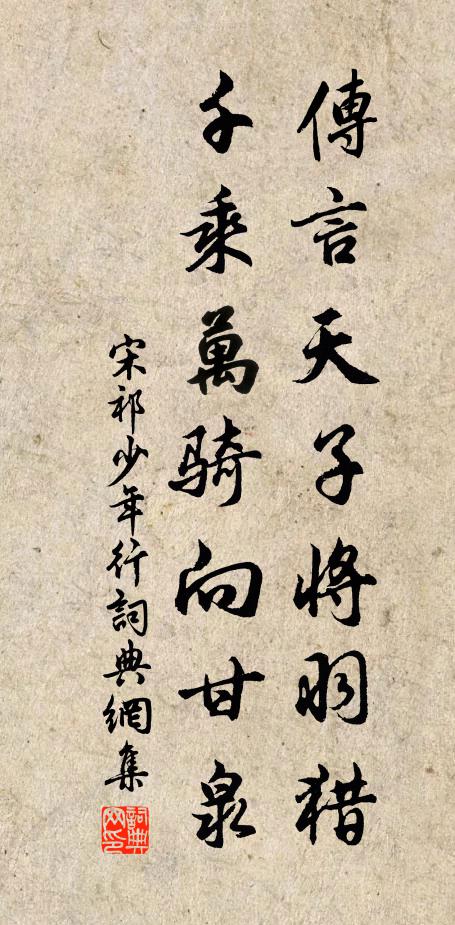 傳言天子將羽猎
千乘萬騎向甘泉
宋祁少年行詞典網集
詞典網印